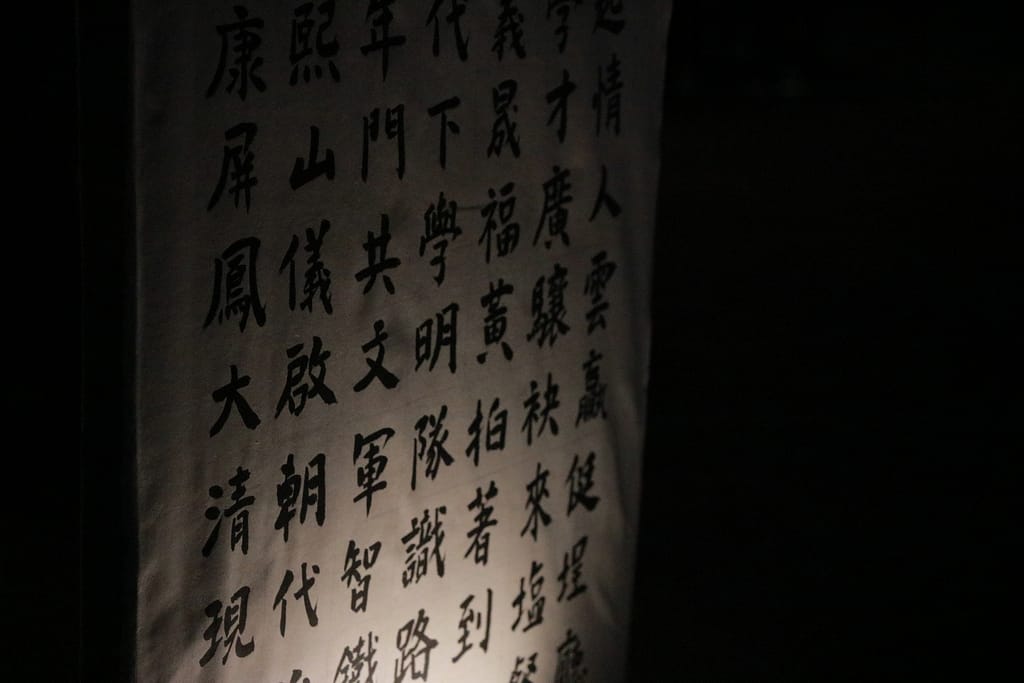 康熙年代義學起
屏山門下晟才情
鳳儀共學福廣人
大啟文明黃驤雲
清朝軍隊拍袂贏
現代智識著來
鐵路到塩埕
廳